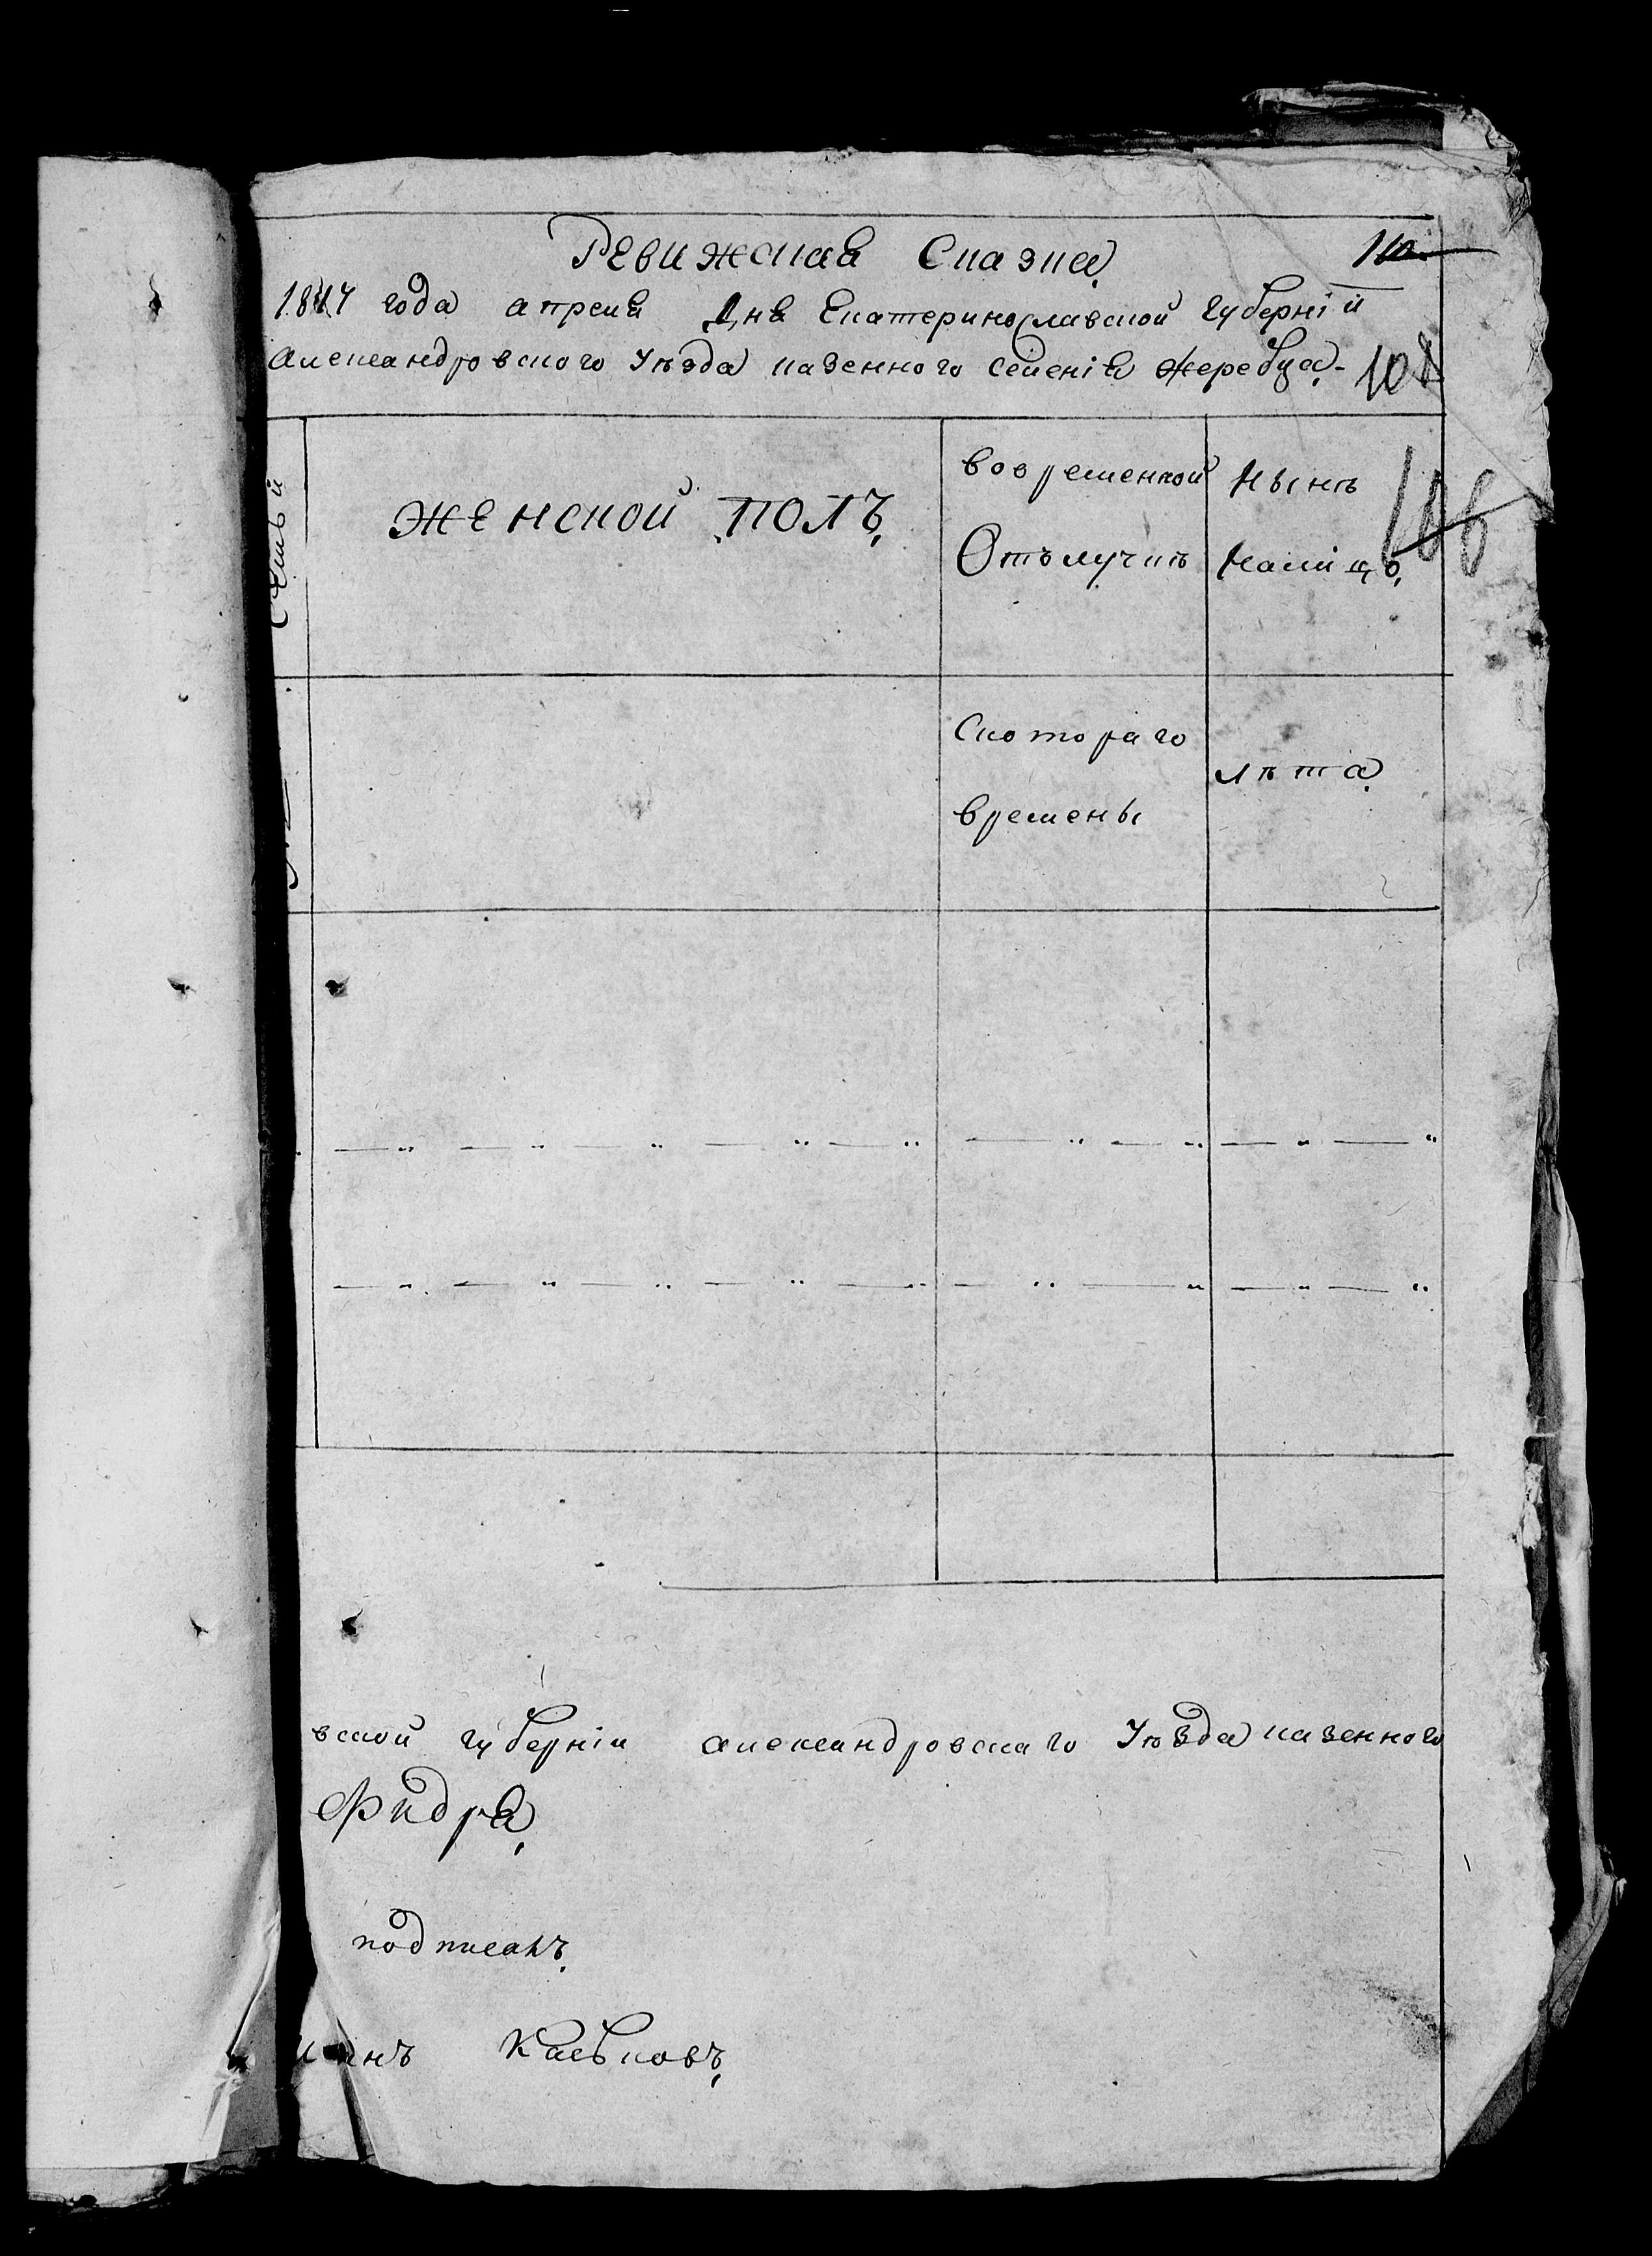 Ревижская Сказка
110
18417 года апреля Дня Екатеринославской губернiй
Александровского Уѣзда казенного селенiя Жеребца-
108
106
семьи
женской полъ
вовременной
Отълучкѣ
нынѣ
налицо
Скотораго
времены
лѣта
вской губернiи александровскаго Уѣзда казенного
Фидра
подписанъ